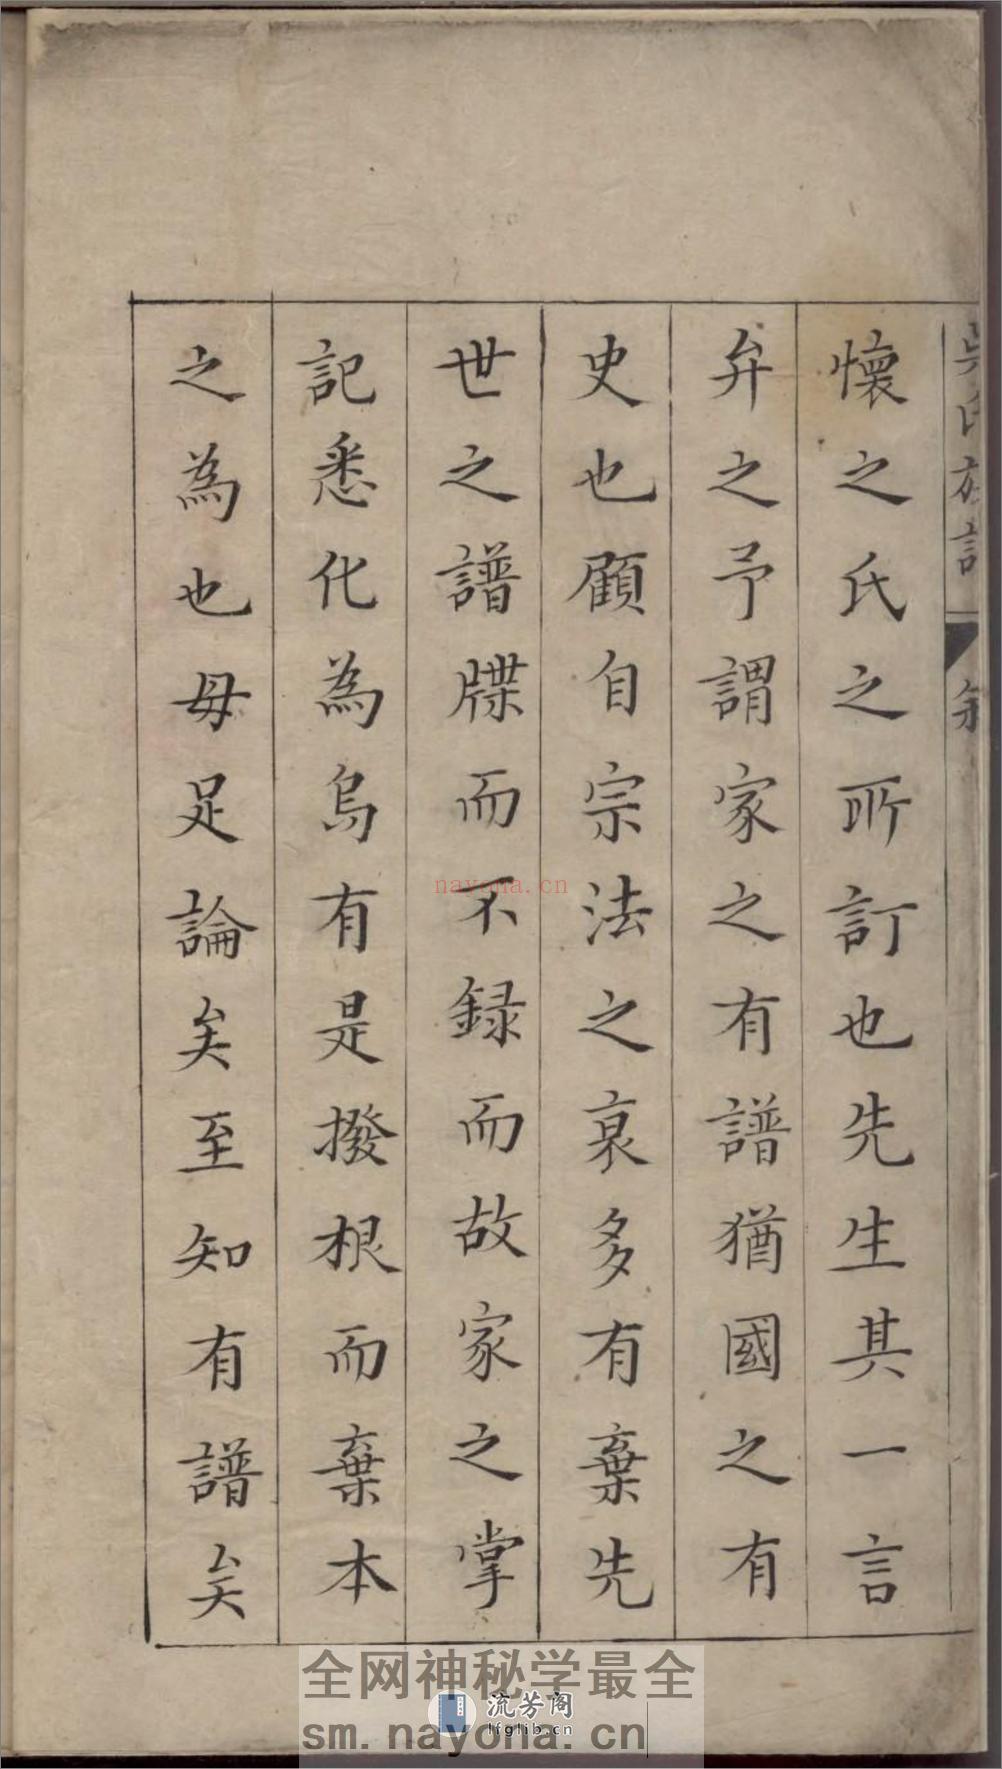 吳氏族譜 叙
懷之氏之所訂也先生其一言
弁之予謂家之有譜猶國之有
史也顧自宗法之衰多有棄先
世之譜牒而不録而故家之掌
記悉化為烏有是撥根而棄本
之為也毋足論矣至知有譜矣
nayona.cn
全网神秘学最全
流芳阁
lfglib.cn
sm.nayona.cn